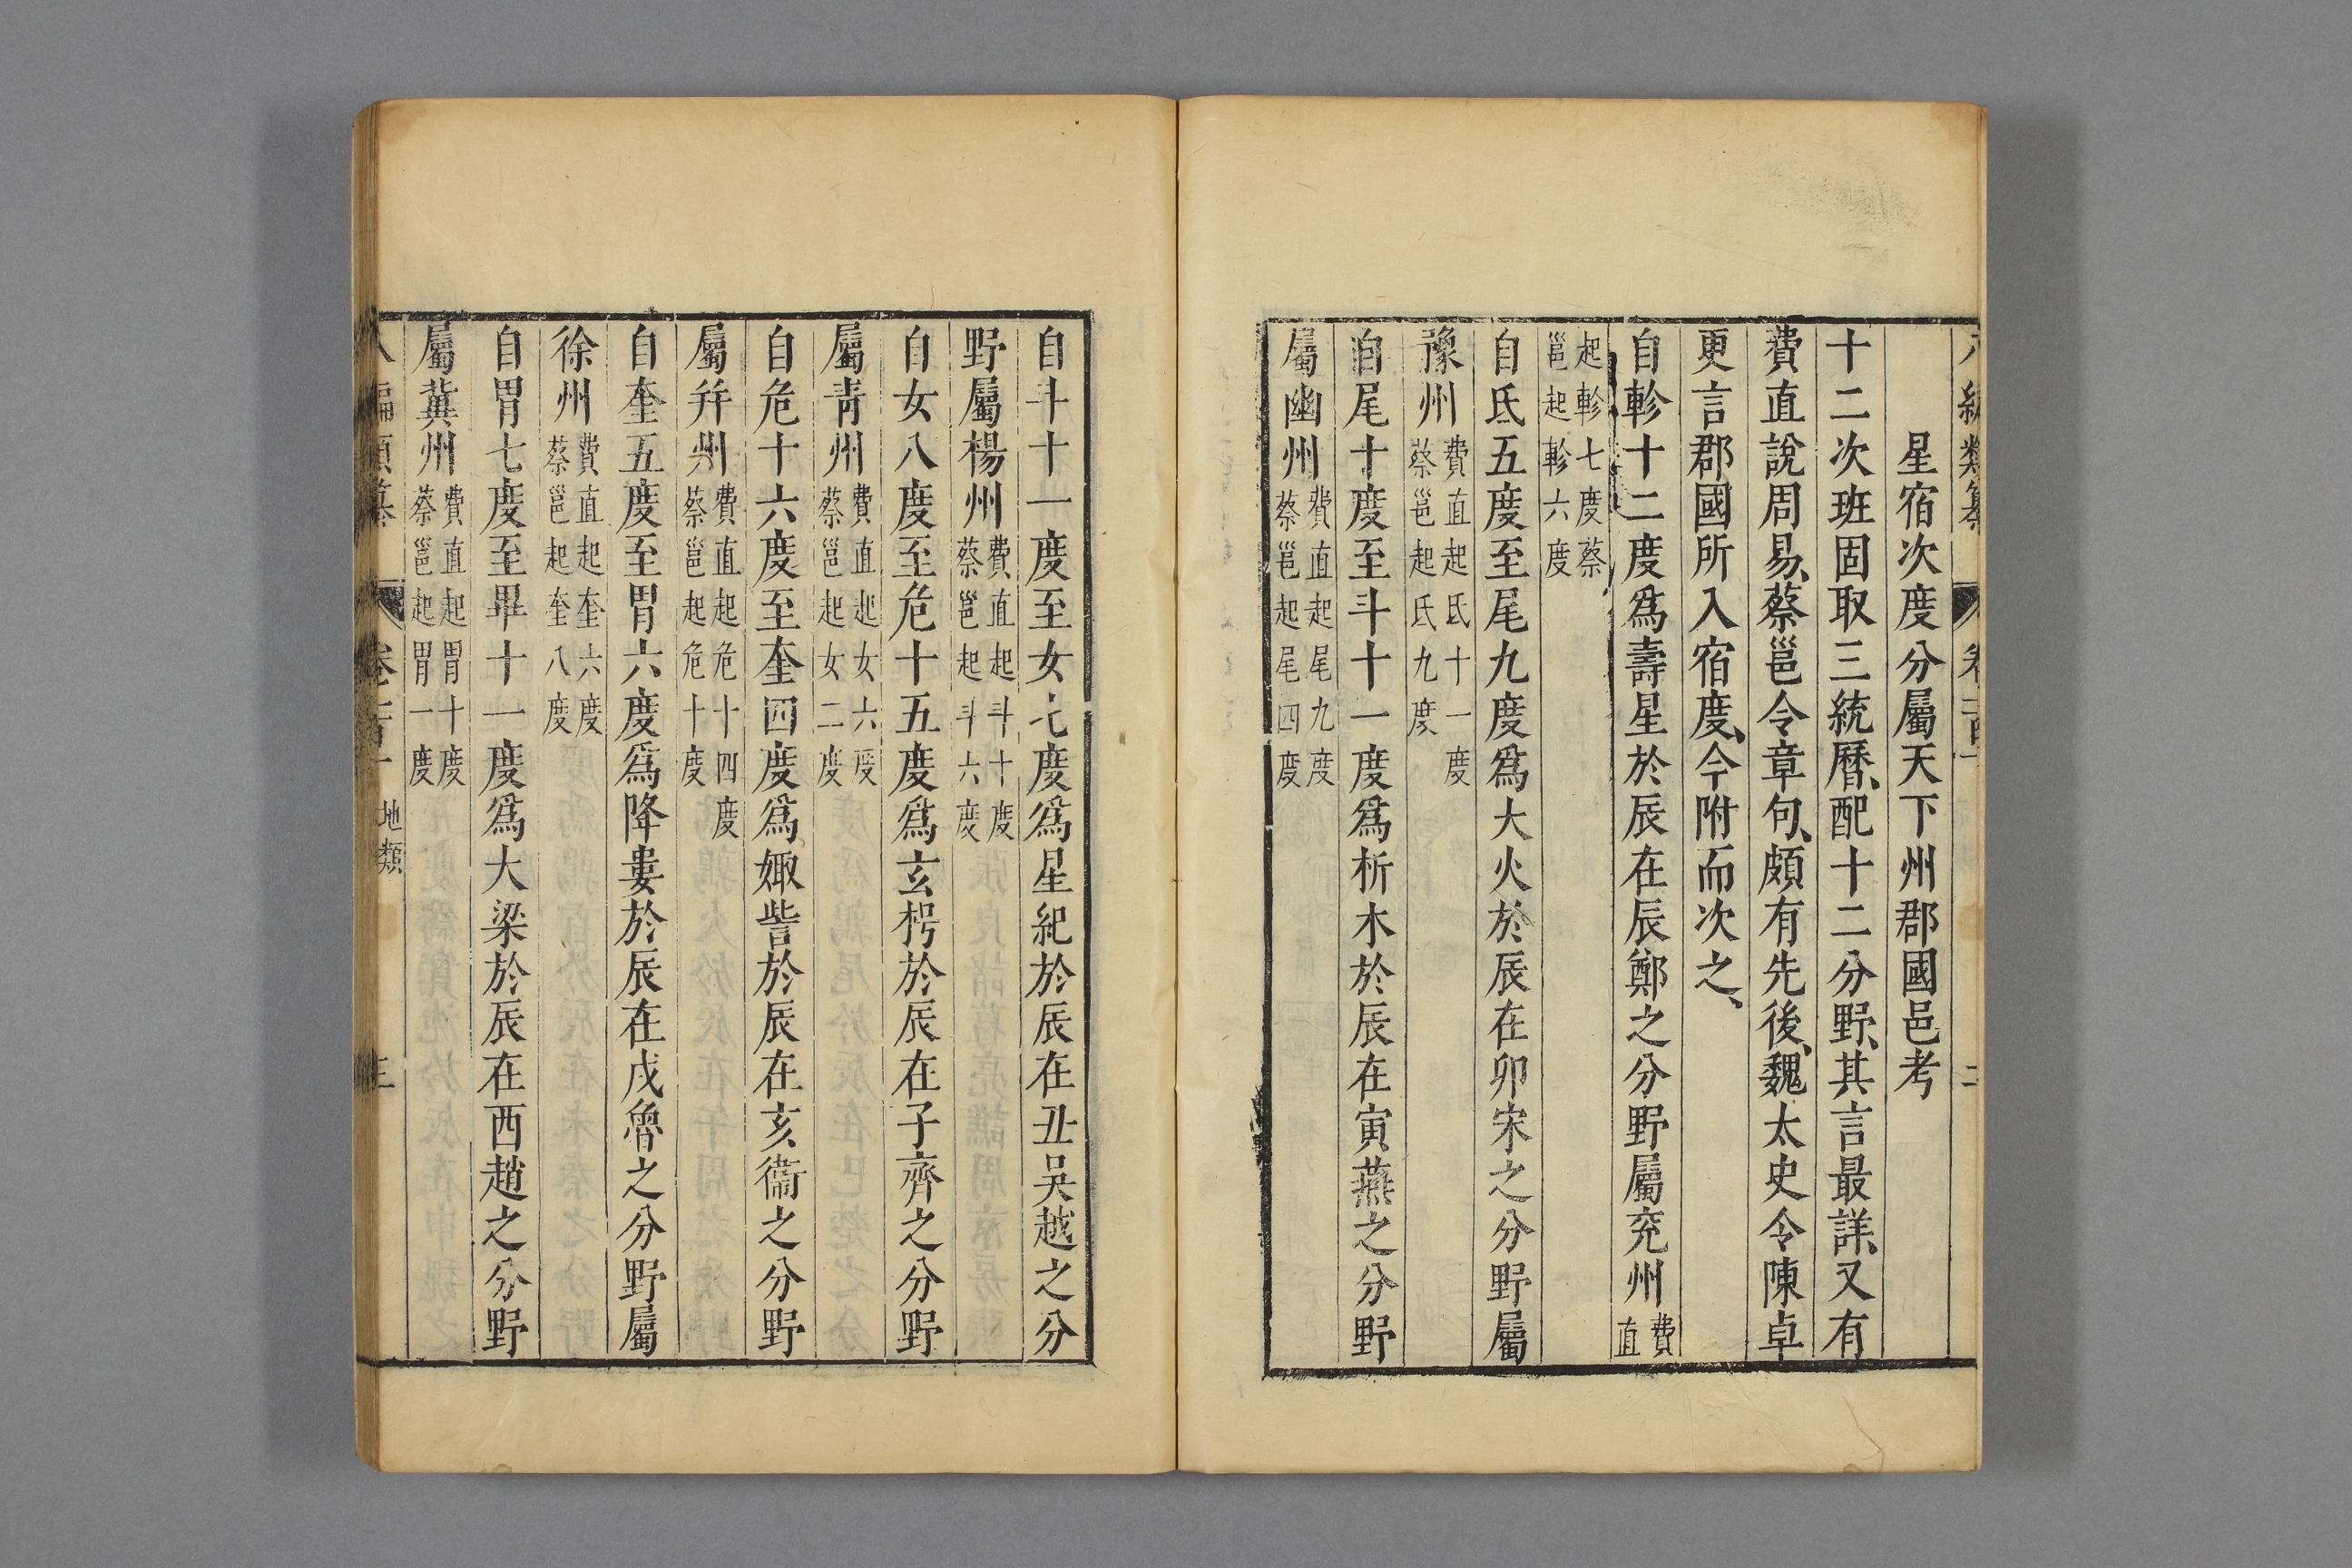 星宿次度分屬天下州郡國邑考
十二次班固取三統曆、配十二分野、其言最詳、又有
費直說周易、蔡邕令章句、頗有先後、魏太史令陳卓
更言郡國所入宿度、今附而次之、
自軫十二度爲壽星於辰在辰鄭之分野屬兗州費直
起軫七度蔡邕起軫六度
自氐五度至尾九度爲大火於辰在卯宋之分野屬
豫州費直起氐十一度蔡邕起氐九度
自尾十度至斗十一度爲析木於辰在寅燕之分野
屬幽州費直起尾九度蔡邕起尾四度
自斗十一度至女七度爲星紀於辰在丑吳越之分
野屬楊州費直起斗十度蔡邕起斗六度
自女八度至危十五度爲玄枵於辰在子齊之分野
屬靑州費直起女六度蔡邕起女二度
自危十六度至奎四度爲娵訾於辰在亥衞之分野
屬幷州費直起危十四度蔡邕起危十度
自奎五度至胃六度爲降婁於辰在戌魯之分野屬
徐州費直起奎六度蔡邕起奎八度
自胃七度至畢十一度爲大梁於辰在酉趙之分野
屬冀州費直起胃十度蔡邕起胃一度
地類